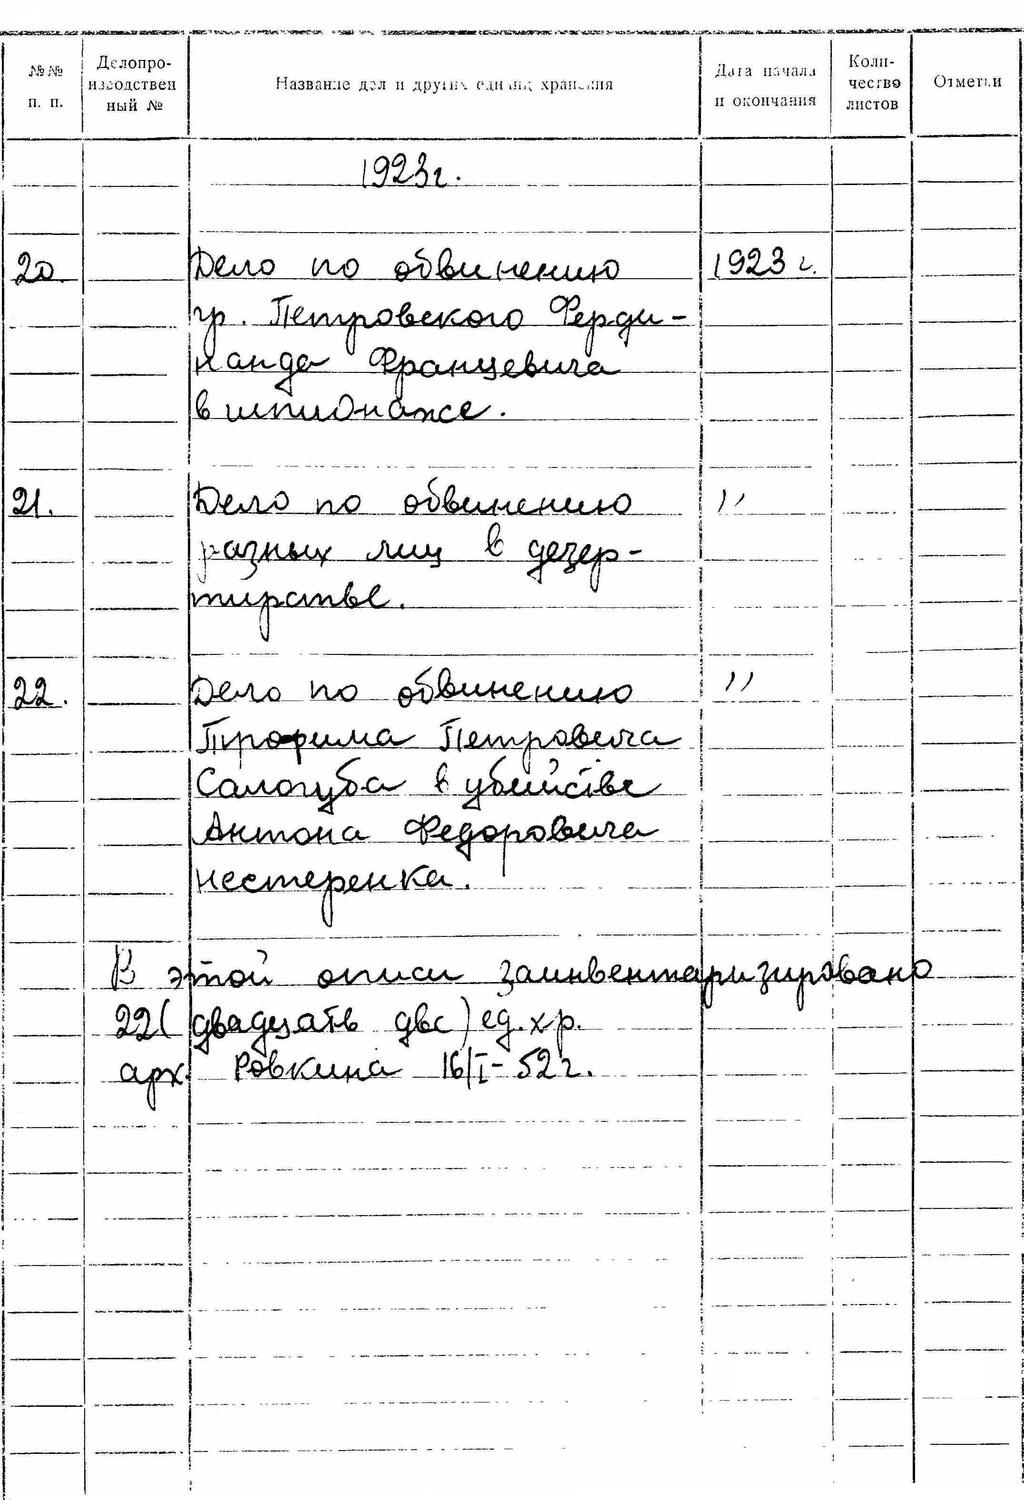 №№ п. п.
Делопро-
изводствен
ный №
Название дел и других единиц хранения
Дата начала
и окончания
Коли-
чество
листов
Отметки
1923г.
20. Дело по обвинению 1923 г.
гр. Петровского Ферди-
нанда Францевича
в шпионаже.
21. Дело по обвинению "
разных лиц в дезер-
тирстве.
22. Дело по обвинению "
Трофима Петровича
Салогуба в убийстве
Антона Федоровича
Нестеренка.
В этой описи заинвентаризировано
22 (двадцать два) ед. хр.
арх. Ровкина 16/I-52г.